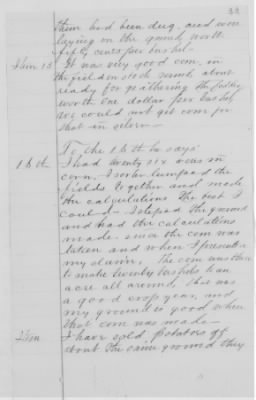 39
them had been dug, and were
laying on the ground, worth
fifty cents per bushel.
Item 15 It was very good corn, in
the field on stock and about
ready for gathering the fodder
worth one dollar per bushel,
we could not get corn for
that in
To the 16th he says
16th I had twenty six acres in
corn. I sorter lumped the
fields together and made
the calculations the best I
could. I steped the ground
and had the calculations
made since the corn was
taken and when I presented
my claim, the corn was there
to make twenty bushels to an
acre all around, that was
a good crop year, and
my ground is good when
that corn was made.
Item I have sold potatoes off
about the same ground they